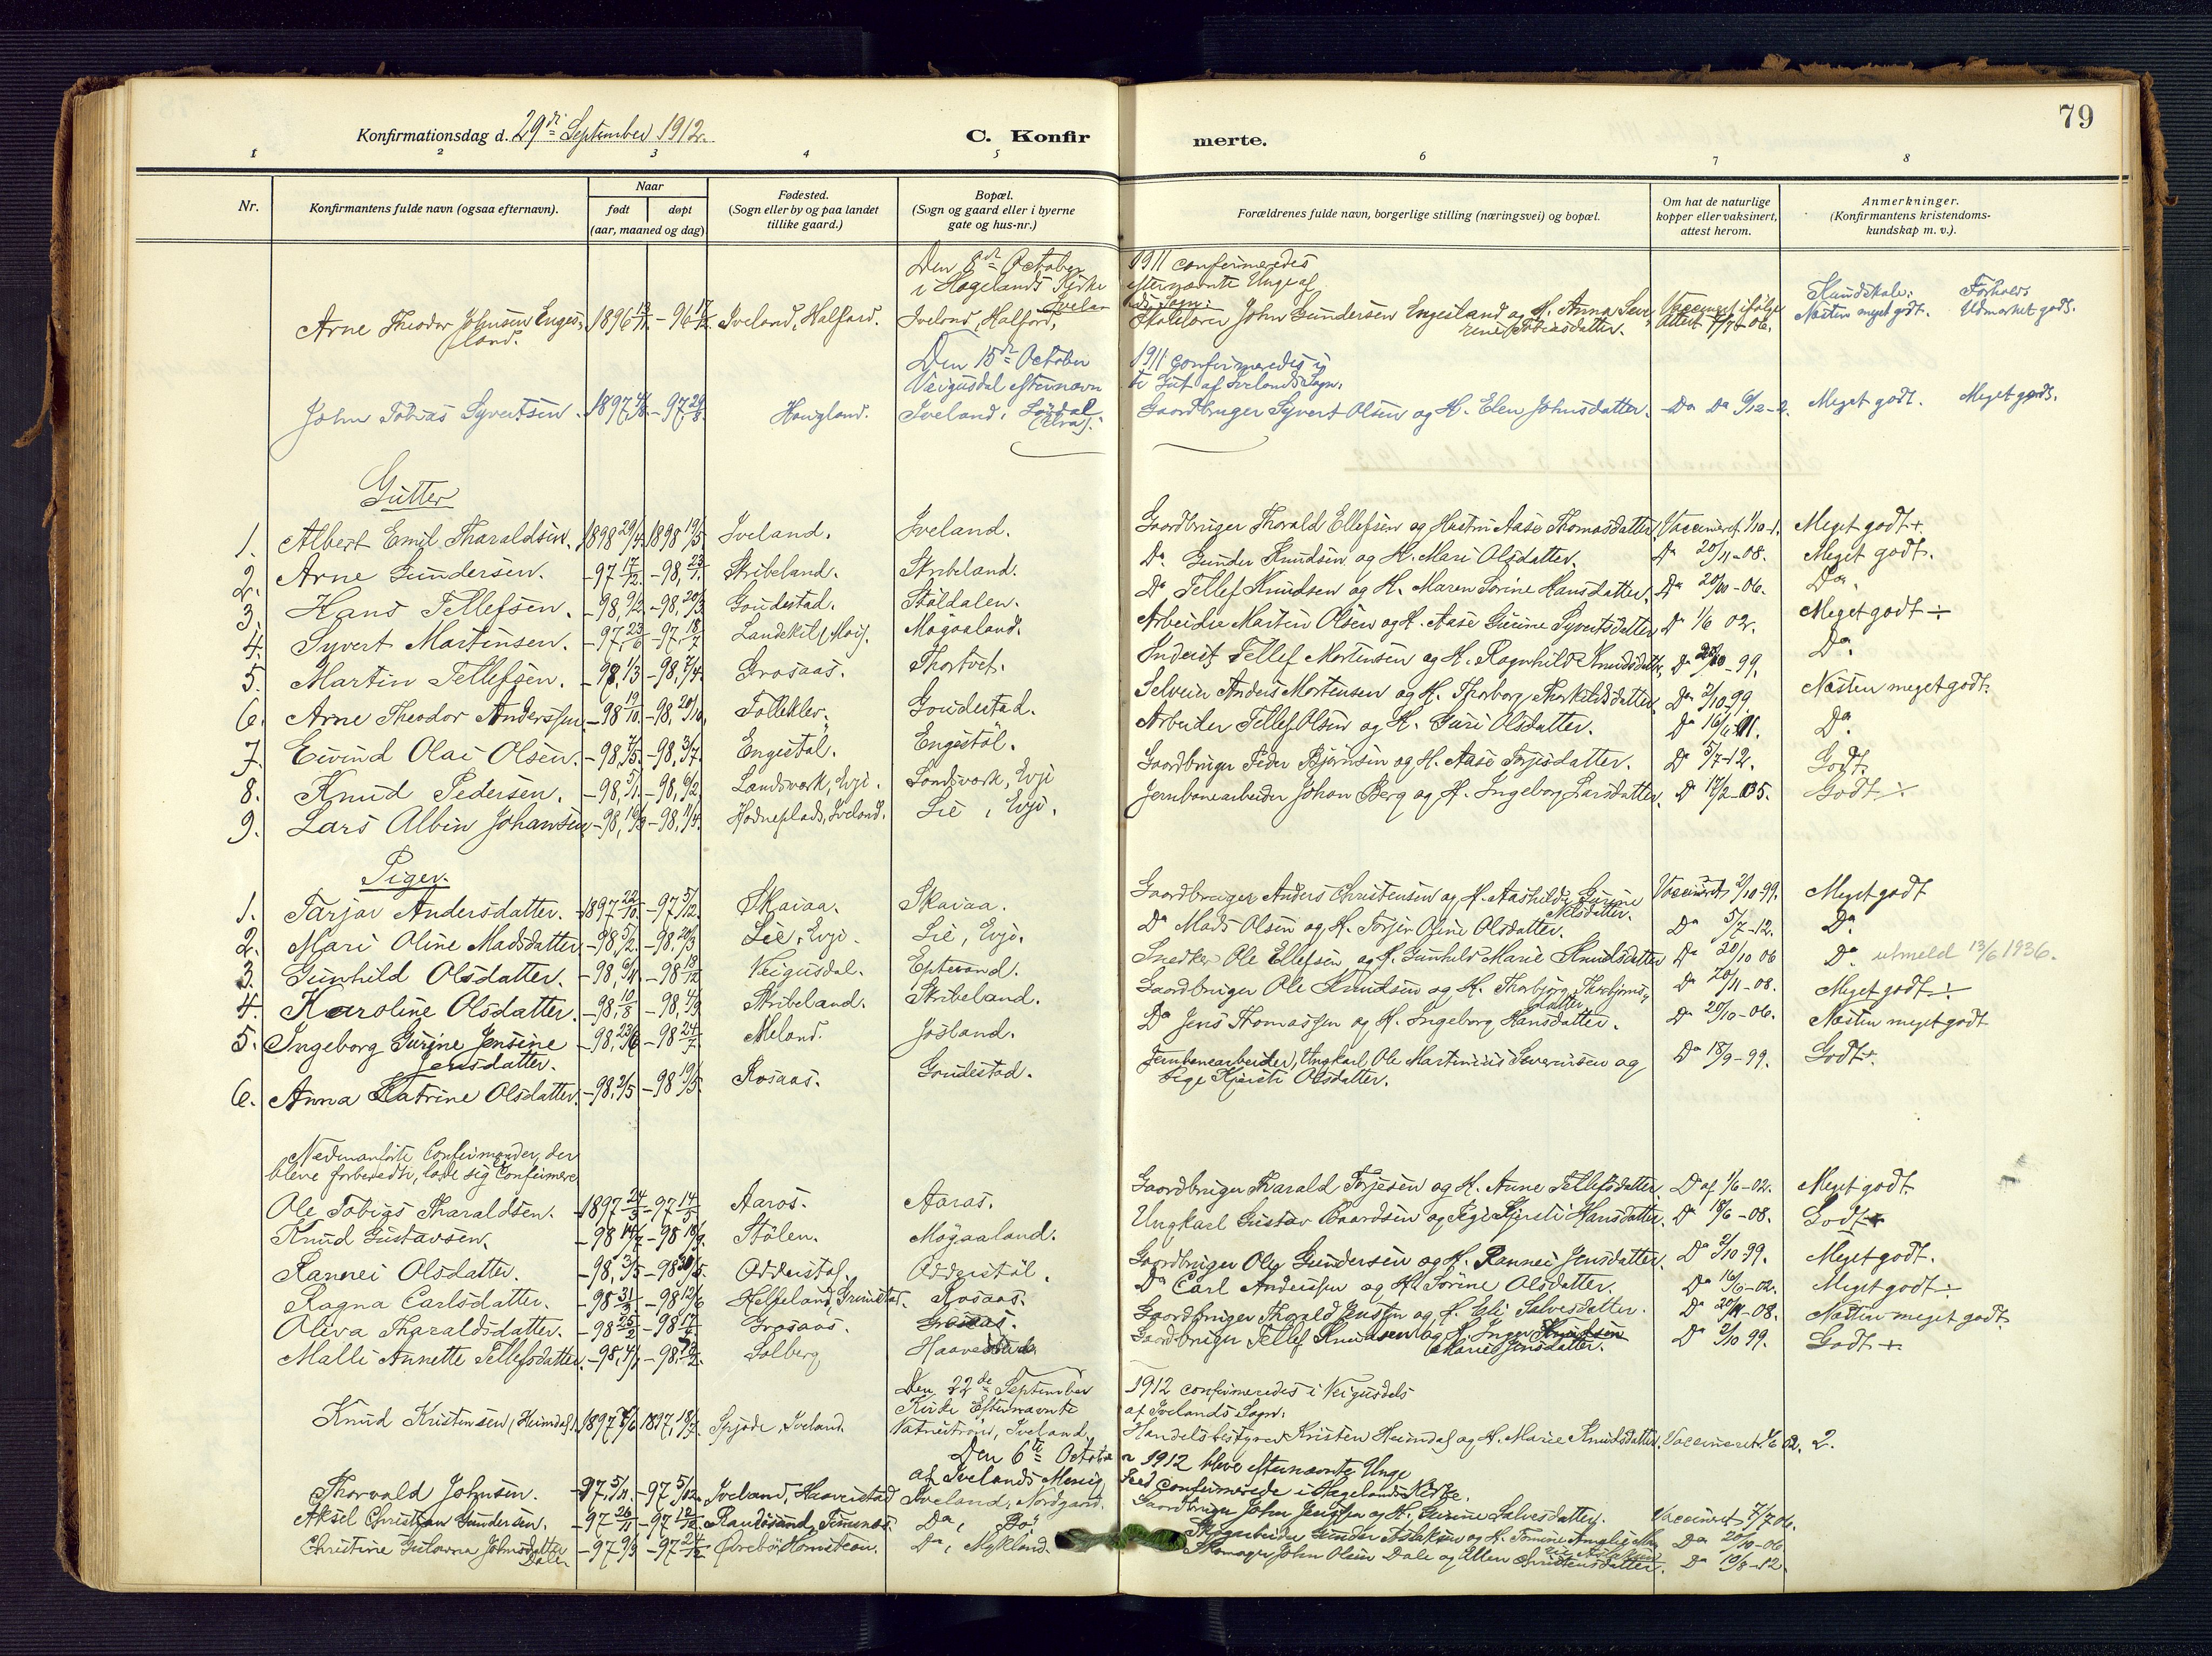 79
Konfirmationsdag d. 29de September 1912.
C. Konfirmerte.
1 2 3 4 5 6 7 8
Nr.
Konfirmantens fulde navn (ogsaa efternavn).
Naar
født døpt
(aar, maaned og dag)
Fødested.
(Sogn eller by og paa landet
tillike gaard.)
Bopæl.
(Sogn og gaard eller i byerne
gate og hus-nr.)
Forældrenes fulde navn, borgerlige stilling (næringsvei) og bopæl.
Om hat de naturlige
kopper eller vaksinert,
attest herom.
Anmerkninger.
(Konfirmantens kristendoms-
kundskap m. v.).
Den 8de October 1911 confirmeredes
i Hægelands Kirke efternævnte Unge af
Ivelands Sogn:
Arne Theodor Johnsen Engesland. 1896 Iveland, Halfard. Iveland, Halford, John Gundersen Engesland og H. Anna Severine Tobiasdatter. Vaccineret ifølge Attest 7/7-06. Kundskab: Næsten meget godt. Forhold Udmærket godt.
Den 15de October 1911 confirmeredes i
Veigusdal efternævnte Gut af Ivelands Sogn:
John Tobias Syvertsen. 1897 4/8 -97 29/8. Hougland. Iveland, Gaardbruger Syvert Olsen og H. Elen Johnsdatter. Da Da 6/12-2. Meget godt. Meget godt.
Gutter
1. Albert Emil Tharaldsen. 1898 29/4 1898 19/5 Iveland. Iveland. Gaardbruger Tharald Ellefsen og Hustru Aase Thomasdatter. Vaccineret 1/10-1. Meget godt +
2. Arne Gundersen. -97 17/12. -98, 23/1. Skribeland. Skribeland. Da Gunder Knudsen og H. Mari Olsdatter. Da 20/11-08. Meget godt.
3. Hans Tellefsen. -98, 9/2 -98, 20/3 Goudestad. Støldalen. Da Tellef Knudsen og H. Maren Sorine Hansdatter. Da 20/10-06. Da.
4. Syvert Martinsen. -97, 23/6 -97, 18/7 Landskil (Moi). Mogaaland. Arbeider Martin Olsen og H. Aase Gurine Syvertsdatter Da 1/6 02. Meget godt ÷
5. Martin Tellefsen. -98, 1/3 -98, 7/4. Grosaas. Thortvet. Inderst Tellef Mortensen og H. Ragnhild Knudsdatter, Da 20/10-99. Da.
6. Arne Theodor Anderssen -98 19/10. -98, 20/10. Tolleklev. Goudestad. Selveier Anders Mortensen og H. Thorborg Therkildsdatter. Da 2/10 99. Næsten meget godt.
7. Eivind Olai Olsen. -98, 7/5. -98, 3/7. Engestøl. Engestøl. Arbeider Tellef Olsen og H. Guri Olsdatter. Da 16/6-11. Da.
8. Knud Pedersen. -98, 5/1. -98, 6/2. Landsverk, Evje. Landsverk, Evje Gaardbruger Peder Bjørnsen og H. Aase Torjesdatter. Da 5/7-12. Godt.
9. Lars Albin Johansen -98, -98, Hodneplads, Iveland. Lie, Evje. Jernbanearbeider Johan Berg og H. Ingeborg Larsdatter. Da 17/2-05. Godt ÷
Piger.
1. Tarjar Andersdatter. 1897 22/10. -97 5/12. Skaiaa. Skaiaa. Gaardbruger Anders Christensen og H. Aashilde Gurine Nilsdatter. Vaccineret 2/10-99. Meget godt
2. Mari Oline Madsdatter -98, 5/2. -98, 20/3 Lie, Evje. Lie, Evje. Da Mads Olsen og H. Torjer Oline Olsdatter. Da 5/7-12. Da.
3. Gunhild Olsdatter. -98, 6/11. -98 18/12 Veigusdal. Eptevand. Snedker Ole Ellefsen og H. Gunhild Marie Knudsdatter Da 20/10 06 Da utmeld 13/6 1936.
4. Karoline Olsdatter. -98, 10/8 -98, 4/9 Skribeland. Skribeland. Gaardbruger Ole Knudsen og H. Thorbjørg Thorbjørnsdatter. Da 20/11-08. Meget godt ÷
5. Ingeborg Gurine Jensine Jensdatter. -98, 23/6 -98 24/7 Meland. Josland. Da Jens Thomassen og H. Ingeborg Hansdatter. Da 20/10-06. Næsten meget godt
6. Anna Katrine Olsdatter. -98, 2/5 -98 19/5. Rosaas. Goudestad. Jernbanearbeider, Ungkarl, Ole Martinius Severinsen og Pige Kjersti Olsdatter. Da 18/9-99. Godt +.
Nedenanførte Confirmander, der
bleve forberedte, lode sig Confirmere
Ole Tobias Tharaldsen. 1897 24/3 -97 14/5 Aaros. Aaras. Gaardbruger Tharald Torjesen og H. Anne Tellefsdatter. Da af 1/6-02. Meget godt
Knud Gustavsen. -98 14/7 -98 18/9. Stølen. Mogaaland. Ungkarl Gustav Baardsen og Pige Kjersti Hansdatter. Da 18/6-08. Godt +
Rannei Olsdatter. -98, 3/5 -98 Oddestøl. Oddestøl. Gaardbruger Ole Gundersen og H. Rannei Jensdatter. Da 2/10 99. Meget godt.
Ragna Carlsdatter. -98 31/3 -98 12/6 Helleland, Grimstad. Rosaas. Da Carl Anderssen og H. Sørine Olsdatter. Da 16/9-02. Meget godt ÷
Oliva Tharaldsdatter. -98 25/2 -98 17/4 Grosaas. Grosaas. Gaardbruger Tharald Jensen og H. Egli Salvesdatter. Da 20/11-08. Næsten meget godt
Malli Annette Tellefsdatter. -98, -98, Solberg Gaardbruger Tellef Knudsen og H. Inger Knudsen Marie Jensdatter. Da 2/10 99. Godt +
Den 22de September 1912 confirmeredes i Veigusdals
Kirke Efternævnte af Ivelands Sogn:
Knud Kristensen (Heimdal). 1897 1897, Spjode, Iveland. Vatnestrøm, Iveland. Handelsbestyrer Kristen Heimdal og H. Marie Knudsdatter. Vaccineret 1/6 02. 2.
Den 6te October 1912 bleve efternævnte Unge
af Ivelands Menighed confirmerede i Hægelands Kirke.
Thorvald Johnsen. -97, 5/11. -97 5/12. Iveland, Haaverstad Iveland, Nordgard. Gaardbruger John Jenssen og H. Gurine Salvesdatter. Vaccineret 7/7 06.
Aksel Christian Gundersen. -97 26/11 -97 12/12 Randøsund, Da, Bø Skogarbeider Gunder Aslaksen og H. Da 20/10-06
Christine Johnsdatter Dale -97 9/9 -97 Øvrebø, Homstean. Da, Mykland. Skomager John Olsen Dale og Ellen Christensdatter. Da 10/8-12.